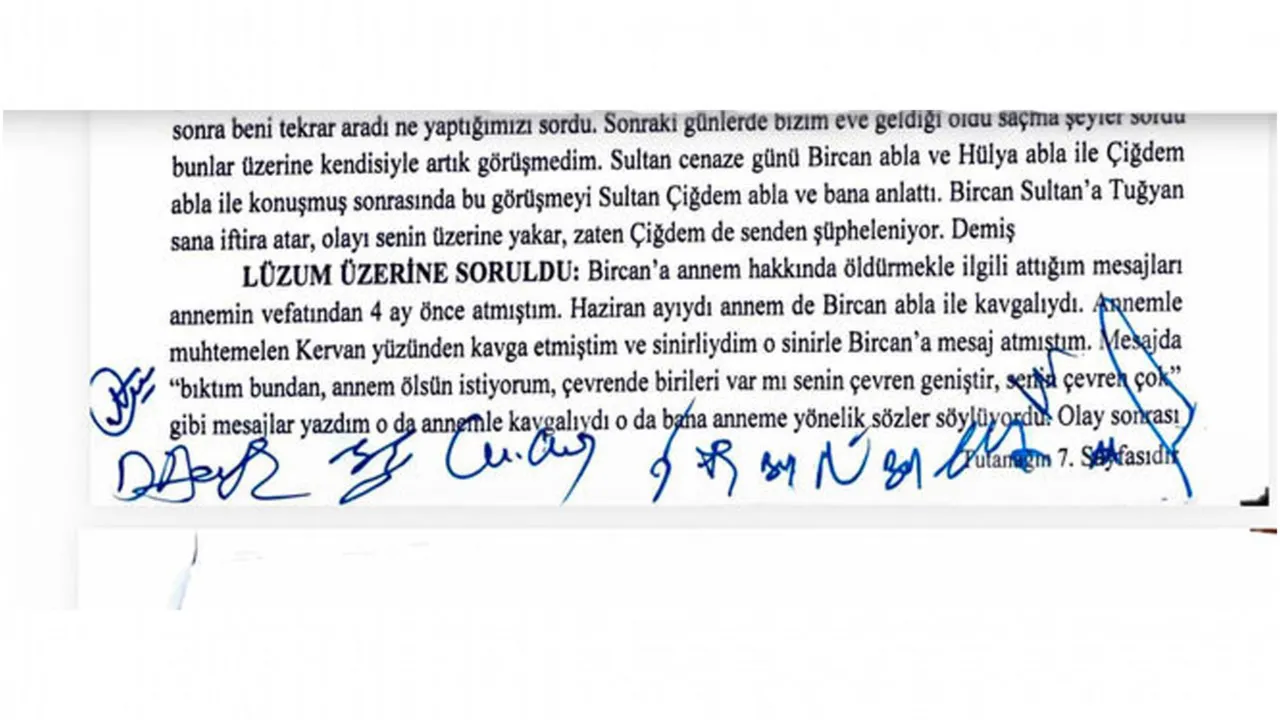 sonra beni tekrar aradı ne yaptığımızı sordu. Sonraki günlerde bizim eve geldiği oldu saçma şeyler sordu
bunlar üzerine kendisiyle artık görüşmedim. Sultan cenaze günü Bircan abla ve Hülya abla ile Çiğdem
abla ile konuşmuş sonrasında bu görüşmeyi Sultan Çiğdem abla ve bana anlattı. Bircan Sultan'a Tuğyan
sana iftira atar, olayı senin üzerine yakar, zaten Çiğdem de senden şüpheleniyor. Demiş
LÜZUM ÜZERİNE SORULDU: Bircan'a annem hakkında öldürmekle ilgili attığım mesajları
annemin vefatından 4 ay önce atmıştım. Haziran ayıydı annem de Bircan abla ile kavgalıydı. Annemle
muhtemelen Kervan yüzünden kavga etmiştim ve sinirliydim o sinirle Bircan'a mesaj atmıştım. Mesajda
“bıktım bundan, annem ölsün istiyorum, çevrende birileri var mı senin çevren geniştir, senin çevren çok”
gibi mesajlar yazdım o da annemle kavgalıydı o da bana anneme yönelik sözler söylüyordu. Olay sonrası
Tutanağın 7. Sayfasıdır